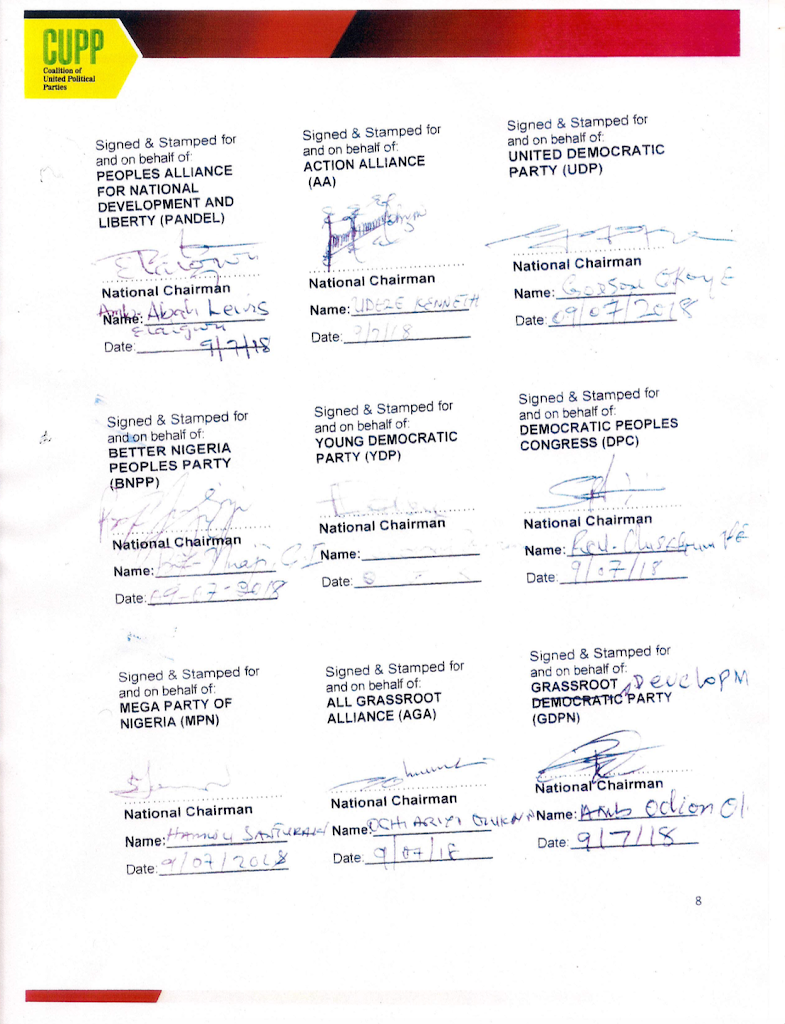 CUPP
Coalition of
United Political
Parties
Signed & Stamped for
and on behalf of:
PEOPLES ALLIANCE
FOR NATIONAL
DEVELOPMENT AND
LIBERTY (PANDEL)
National Chairman
Name: Amb. Abah Lewis
Elaigwu
Date: 9/7/18
Signed & Stamped for
and on behalf of:
ACTION ALLIANCE
(AA)
National Chairman
Name: UDEZE KENNETH
Date: 9/7/18
Signed & Stamped for
and on behalf of:
UNITED DEMOCRATIC
PARTY (UDP)
National Chairman
Name: Godson Okoye
Date: 09/07/2018
Signed & Stamped for
and on behalf of:
BETTER NIGERIA
PEOPLES PARTY
(BNPP)
National Chairman
Name:
Date: 09-07-2018
Signed & Stamped for
and on behalf of:
YOUNG DEMOCRATIC
PARTY (YDP)
National Chairman
Name:
Date:
Signed & Stamped for
and on behalf of:
DEMOCRATIC PEOPLES
CONGRESS (DPC)
National Chairman
Name: Rev.
Date: 9/07/18
Signed & Stamped for
and on behalf of:
MEGA PARTY OF
NIGERIA (MPN)
National Chairman
Name:
Date: 9/07/2018
Signed & Stamped for
and on behalf of:
ALL GRASSROOT
ALLIANCE (AGA)
National Chairman
Name:
Date: 9/07/18
Signed & Stamped for
and on behalf of:
GRASSROOT DEVELOPM
DEMOCRATIC PARTY
(GDPN)
National Chairman
Name: Amb Odion Ol
Date: 9/7/18
8